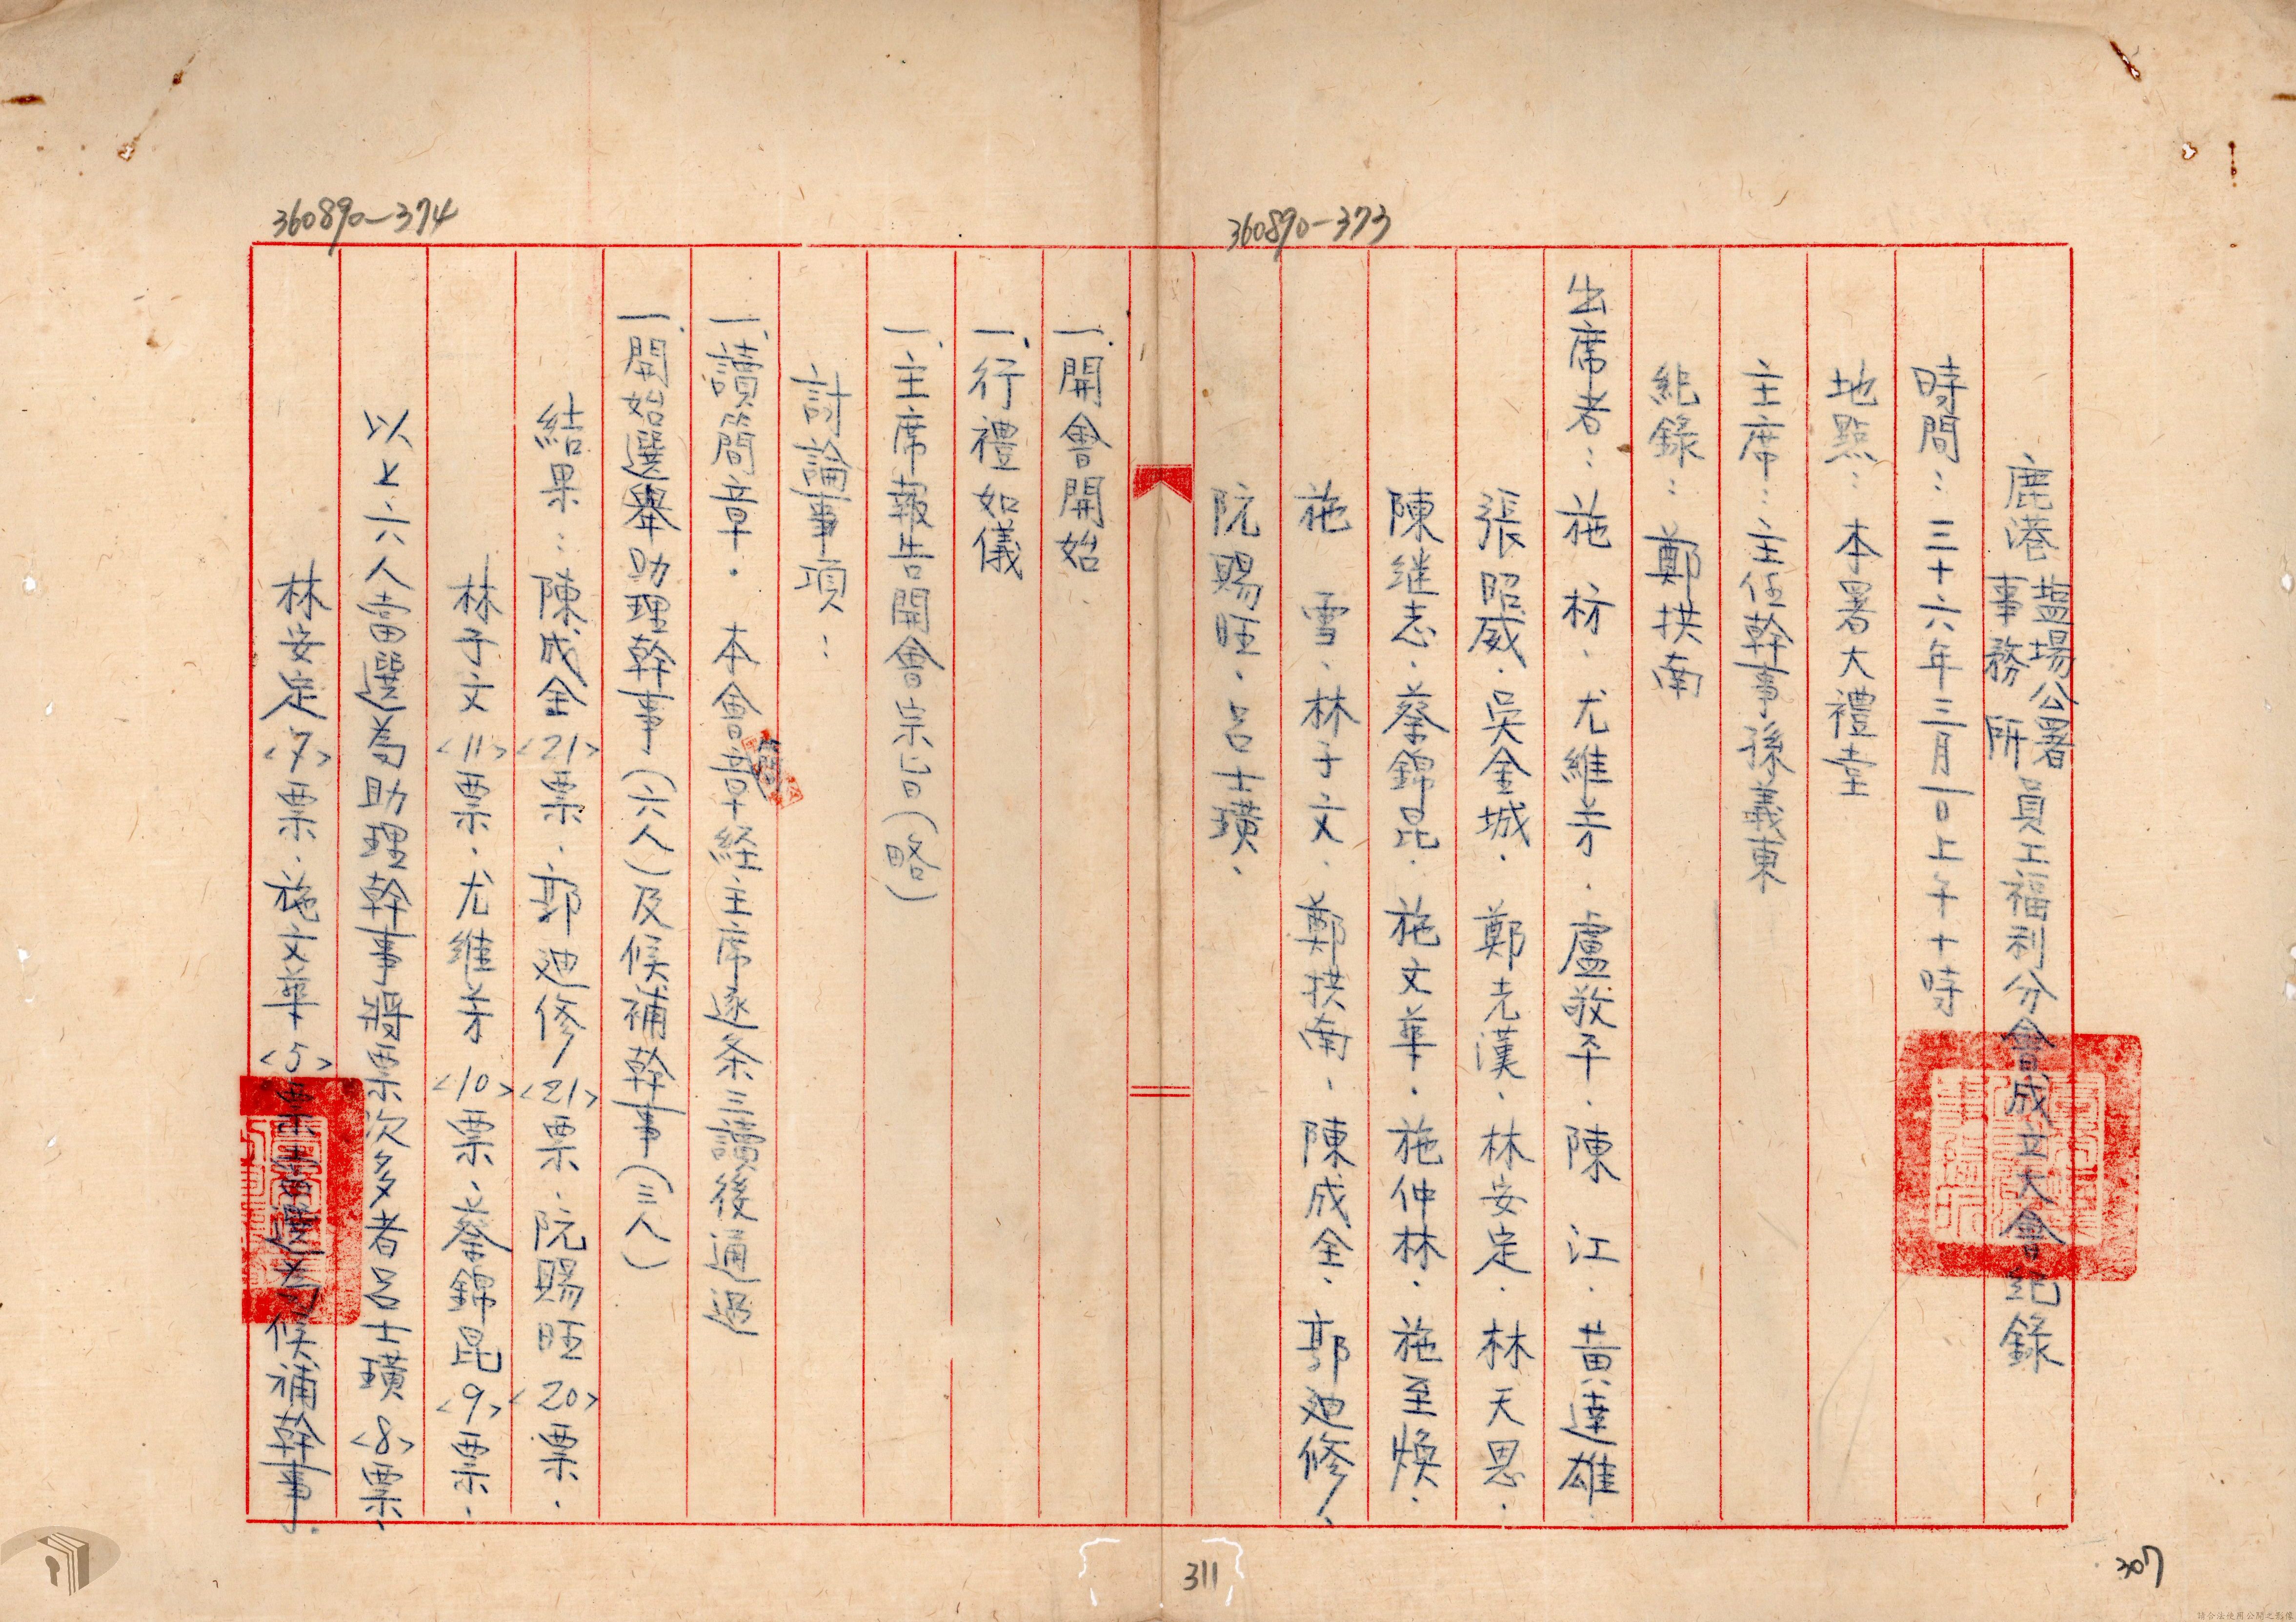 360890-373
鹿港鹽場公署事務所員工福利分會成立大會紀錄
時間：三十六年三月一日上午十時
地點：本署大禮堂
主席：主任幹事孫義東
紀錄：鄭拱南
出席者：施枋．尤維芳．盧敬平．陳江．黃達雄
張昭威．吳金城．鄭光漢．林安定．林天恩．
陳继志．蔡錦昆．施文華．施仲林．施至煥．
施雪．林子文．鄭拱南．陳成全．郭廸修．
阮賜旺．呂士璜．
360890-374
一、開會開始
一、行禮如儀
一、主席報告開會宗旨（略）
討論事項：
一、讀簡章．本會簡章経主席逐条三讀後通過
一、開始選舉助理幹事（六人）及候補幹事（三人）
結果：陳成全<21>票．郭廸修<21>票．阮賜旺<20>票．
林子文<11>票．尤維芳<10>票．蔡錦昆<9>票．
以上六人當選為助理幹事將票次多者呂士璜<8>票．
林安定<7>票．施文華<5>票當選為候補幹事．
311
307